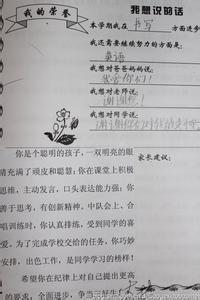 我的荣誉
我想说的话
本学期我在 书写 方面进步
我还需要继续努力的方面是:
英语
我想对爸爸妈妈说:
我爱你们!
我想对老师说:
谢谢您!
我想对同学说:
谢谢你们对我的
家长建议:
你是个聪明的孩子,一双明亮的眼
睛充满了顽皮和聪慧;你在课堂上积极
思维,主动发言,口头表达能力强;你
善于思考,有创新精神。中队会上、合
唱训练时,你认真排练,受到同学的喜
爱。为了完成学校交给的任务,你巧妙
安排,出色工作,是同学学习的榜样!
希望你在纪律上对自己提出更高
的要求,全面进步,争当三好生